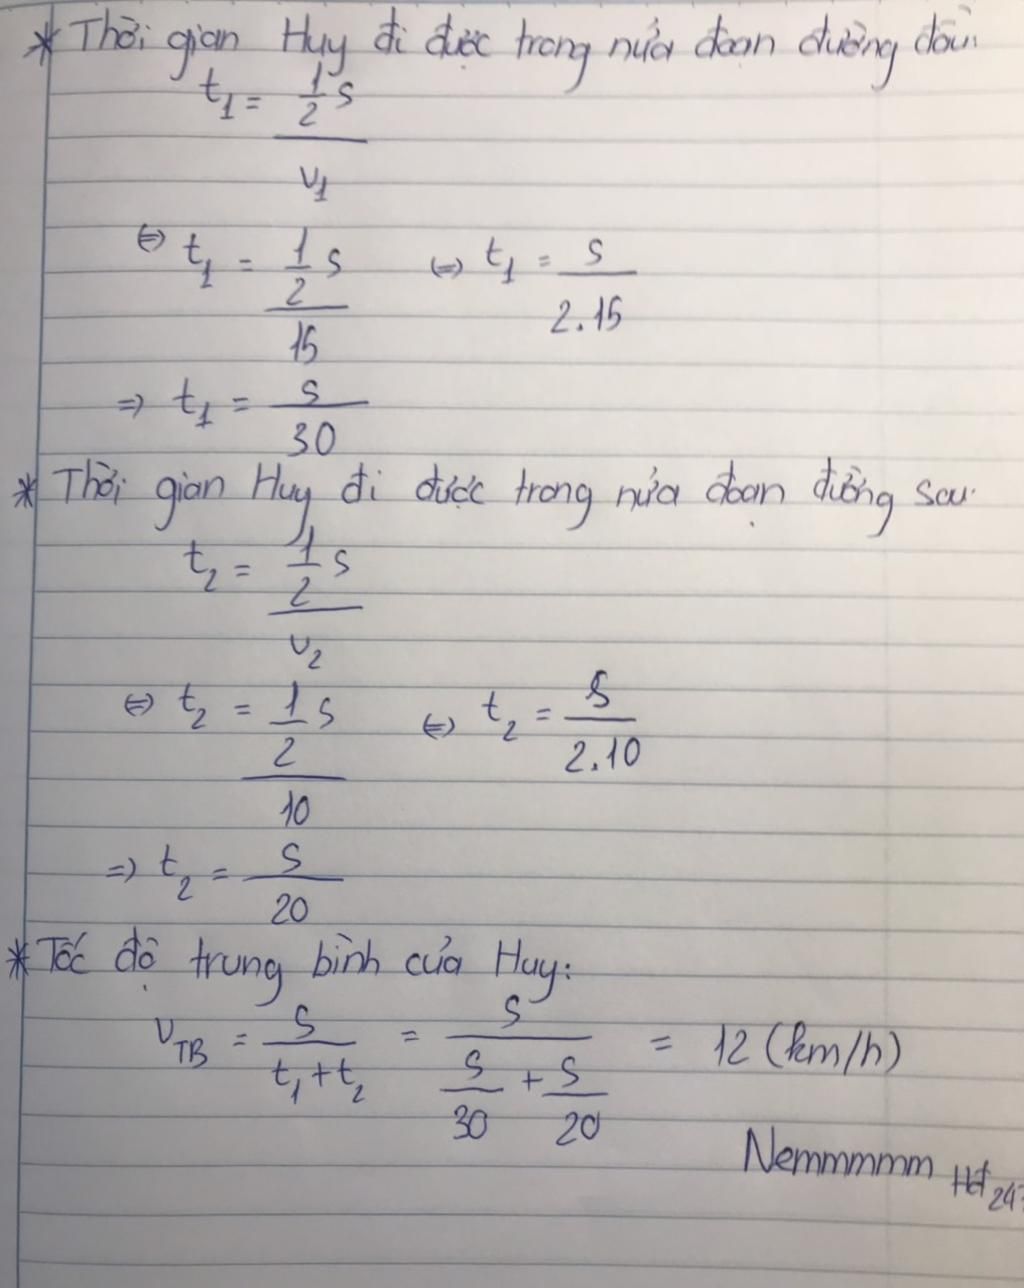 * Thời gian Huy đi được trong nửa đoạn đường đầu:
t₁ = (1/2 s) / v₁
⇔ t₁ = (1/2 s) / 15 ⇔ t₁ = s / 2.15
⇒ t₁ = s / 30
* Thời gian Huy đi được trong nửa đoạn đường sau:
t₂ = (1/2 s) / v₂
⇔ t₂ = (1/2 s) / 10 ⇔ t₂ = s / 2.10
⇒ t₂ = s / 20
* Tốc độ trung bình của Huy:
v_TB = s / (t₁ + t₂) = s / (s/30 + s/20) = 12 (km/h)
Nemmmmm